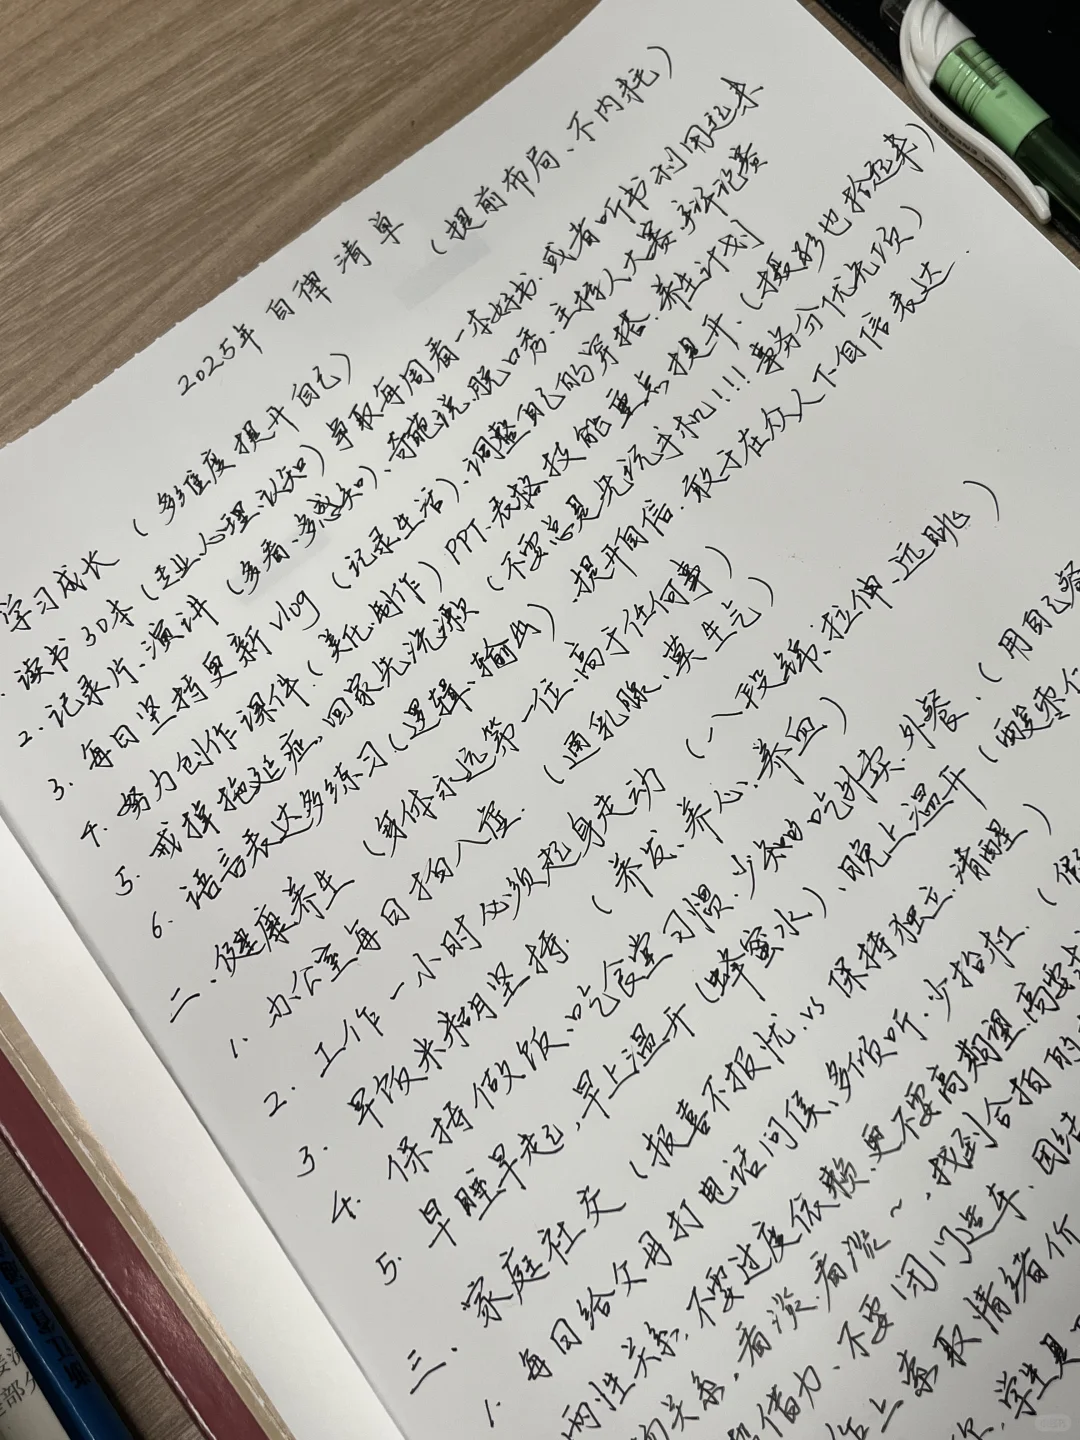 2025年自律清单 (提前布局、不内耗)
学习成长 (多维度提升自己)
读书30本 (专业、心理、认知) 争取每周看一本好书.或者听书利用起来
2. 记录片、演讲 (多看、多感知)、奇葩说、脱口秀、主持人大赛
3. 每日坚持更新vlog (记录生活)、调整自己的穿搭、养生计划
4. 努力创作课件. (美化、制作) PPT、表格技能重点提升. (摄影也拾起来)
5. 戒掉拖延症,回家先洗漱 (不要总是先玩手机!!! 事务分优先项)
6. 语言表达多练习 (逻辑、输出)、提升自信.敢于在众人下自信表达.
二、健康养生 (身体永远第一位、高于任何事)
1. 办公室每日拍八虚. (通乳腺、莫生气)
2. 工作一小时必须起身走动 (八段锦、拉伸、远眺)
3. 早饭米糊坚持. (养发、养心、养血)
4. 保持做饭、吃食堂习惯.少吃外卖、外餐. (用自己餐
5. 早睡早起,早上温开 (蜂蜜水)、晚上温开 (酸枣仁
三、家庭社交 (报喜不报忧. vs 保持独立、清醒)
1. 每日给父母打电话问侯、多倾听.少抬杠. (
两性关系,不要过度依赖、更不要高期望、高要求
的关系,看淡、看淡~,找到合拍的
借力、不要闭门造车、团结
上索取情绪价
学生是